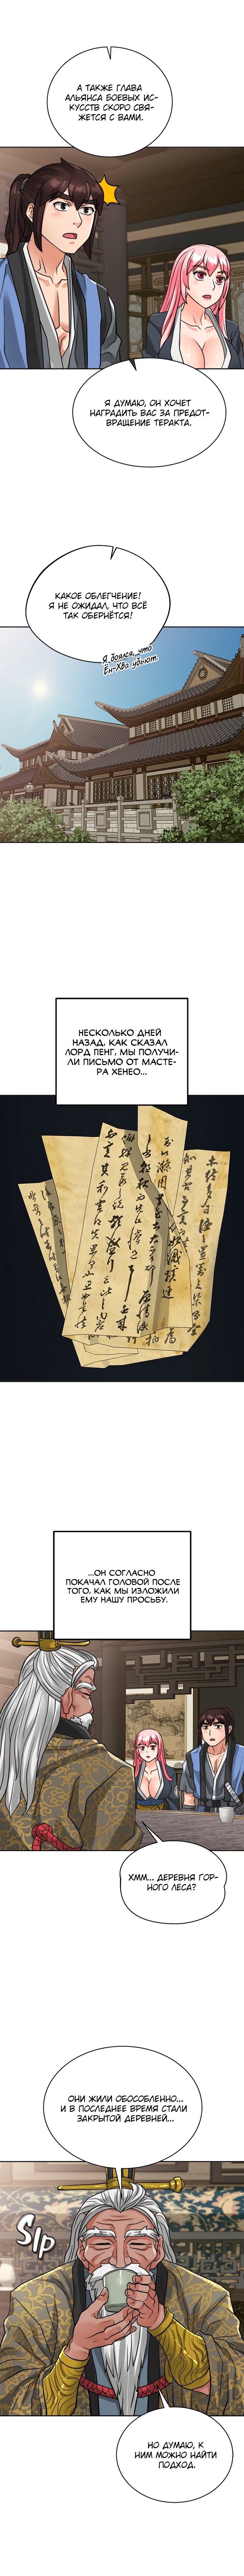 А ТАКЖЕ ГЛАВА
АЛЬЯНСА БОЕВЫХ ИС-
КУССТВ СКОРО СВЯ-
ЖЕТСЯ С ВАМИ.
Я ДУМАЮ, ОН ХОЧЕТ
НАГРАДИТЬ ВАС ЗА ПРЕДОТ-
ВРАЩЕНИЕ ТЕРАКТА.
КАКОЕ ОБЛЕГЧЕНИЕ!
Я НЕ ОЖИДАЛ, ЧТО ВСЁ
ТАК ОБЕРНЁТСЯ!
Я боялся, что
Ён-Хва убьют.
НЕСКОЛЬКО ДНЕЙ
НАЗАД, КАК СКАЗАЛ
ЛОРД ПЕНГ, МЫ ПОЛУЧИ-
ЛИ ПИСЬМО ОТ МАСТЕ-
РА ХЕНЕО...
...ОН СОГЛАСНО
ПОКАЧАЛ ГОЛОВОЙ ПОСЛЕ
ТОГО, КАК МЫ ИЗЛОЖИЛИ
ЕМУ НАШУ ПРОСЬБУ.
ХММ... ДЕРЕВНЯ ГОР-
НОГО ЛЕСА?
ОНИ ЖИЛИ ОБОСОБЛЕННО...
И В ПОСЛЕДНЕЕ ВРЕМЯ СТАЛИ
ЗАКРЫТОЙ ДЕРЕВНЕЙ...
SIP
НО ДУМАЮ, К
НИМ МОЖНО НАЙТИ
ПОДХОД.